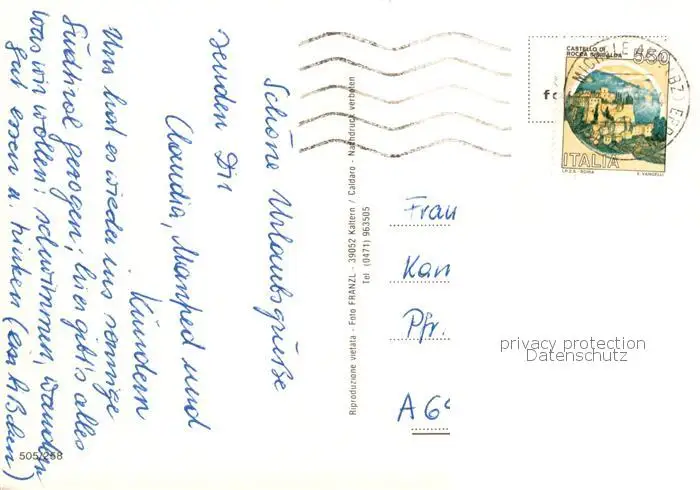 Schöne Urlaubsgrüße
senden Dir
Claudia, Manfred und
Kindern
Uns hat es wieder ins sonnige
Südtirol gezogen; hier gibt's alles
was wir wollen: schwimmen, wandern
gut essen u. trinken (ein bißchen)
505/258
Riproduzione vietata - Foto FRANZL - 39052 Kaltern / Caldaro - Nachdruck verboten
Tel (0471) 963505
CASTELLO DI
ROCCA SINIBALDA
550
ITALIA
I.P.Z.S. - ROMA
E. VANGELLI
Frau
Kan
Pfr.
A 69
privacy protection
Datenschutz